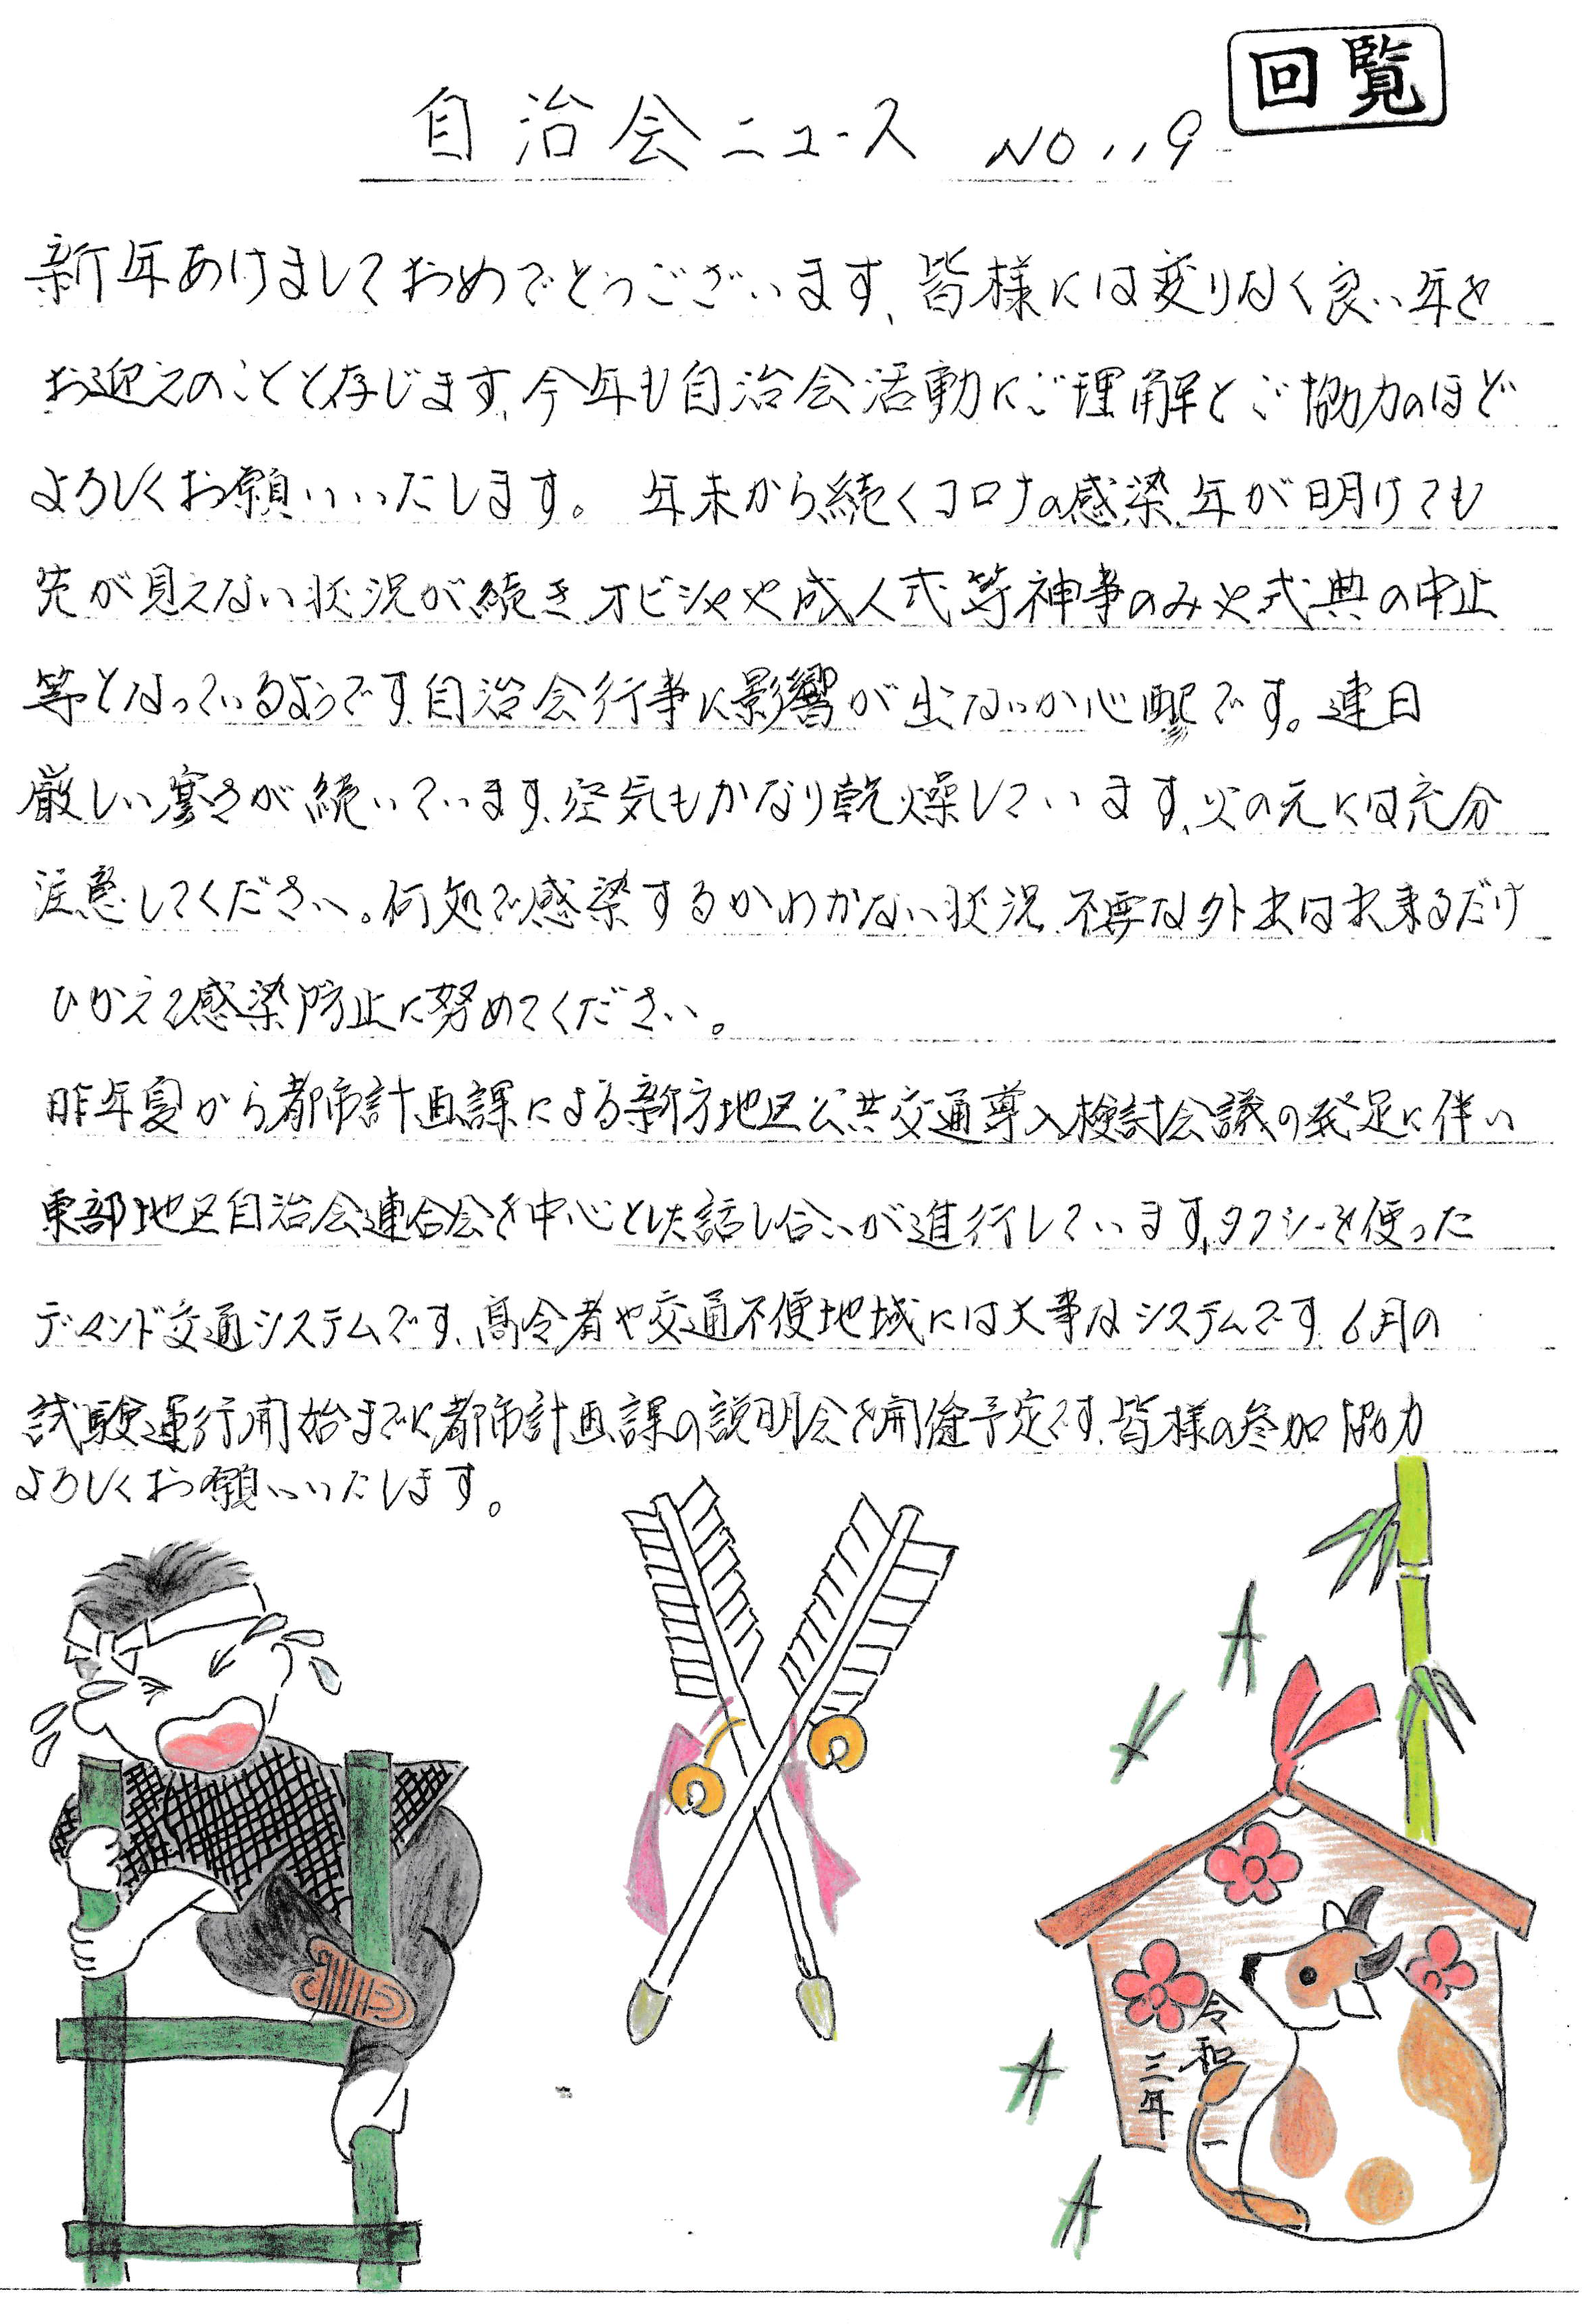 回覧
自治会ニュース NO 119
新年あけましておめでとうございます、皆様には変りなく良い年を
お迎えのことと存じます、今年も自治会活動にご理解とご協力のほど
よろしくお願いいたします。 年末から続くコロナの感染、年が明けても
先が見えない状況が続き、オビシャや成人式等神事のみや式典の中止
等となっているようです、自治会行事に影響が出ないか心配です。連日
厳しい寒さが続いています、空気もかなり乾燥しています、火の元には充分
注意してください。何処で感染するかわかない状況、不要な外出は出来るだけ
ひかえて感染防止に努めてください。
昨年夏から都市計画課による新方地区公共交通導入検討会議の発足に伴い
東部地区自治会連合会を中心とした話し合いが進行しています、タクシーを使った
デマンド交通システムです、高令者や交通不便地域には大事なシステムです、6月の
試験運行開始までに都市計画課の説明会を開催予定です、皆様の参加協力
よろしくお願いいたします。
令和
三年
一